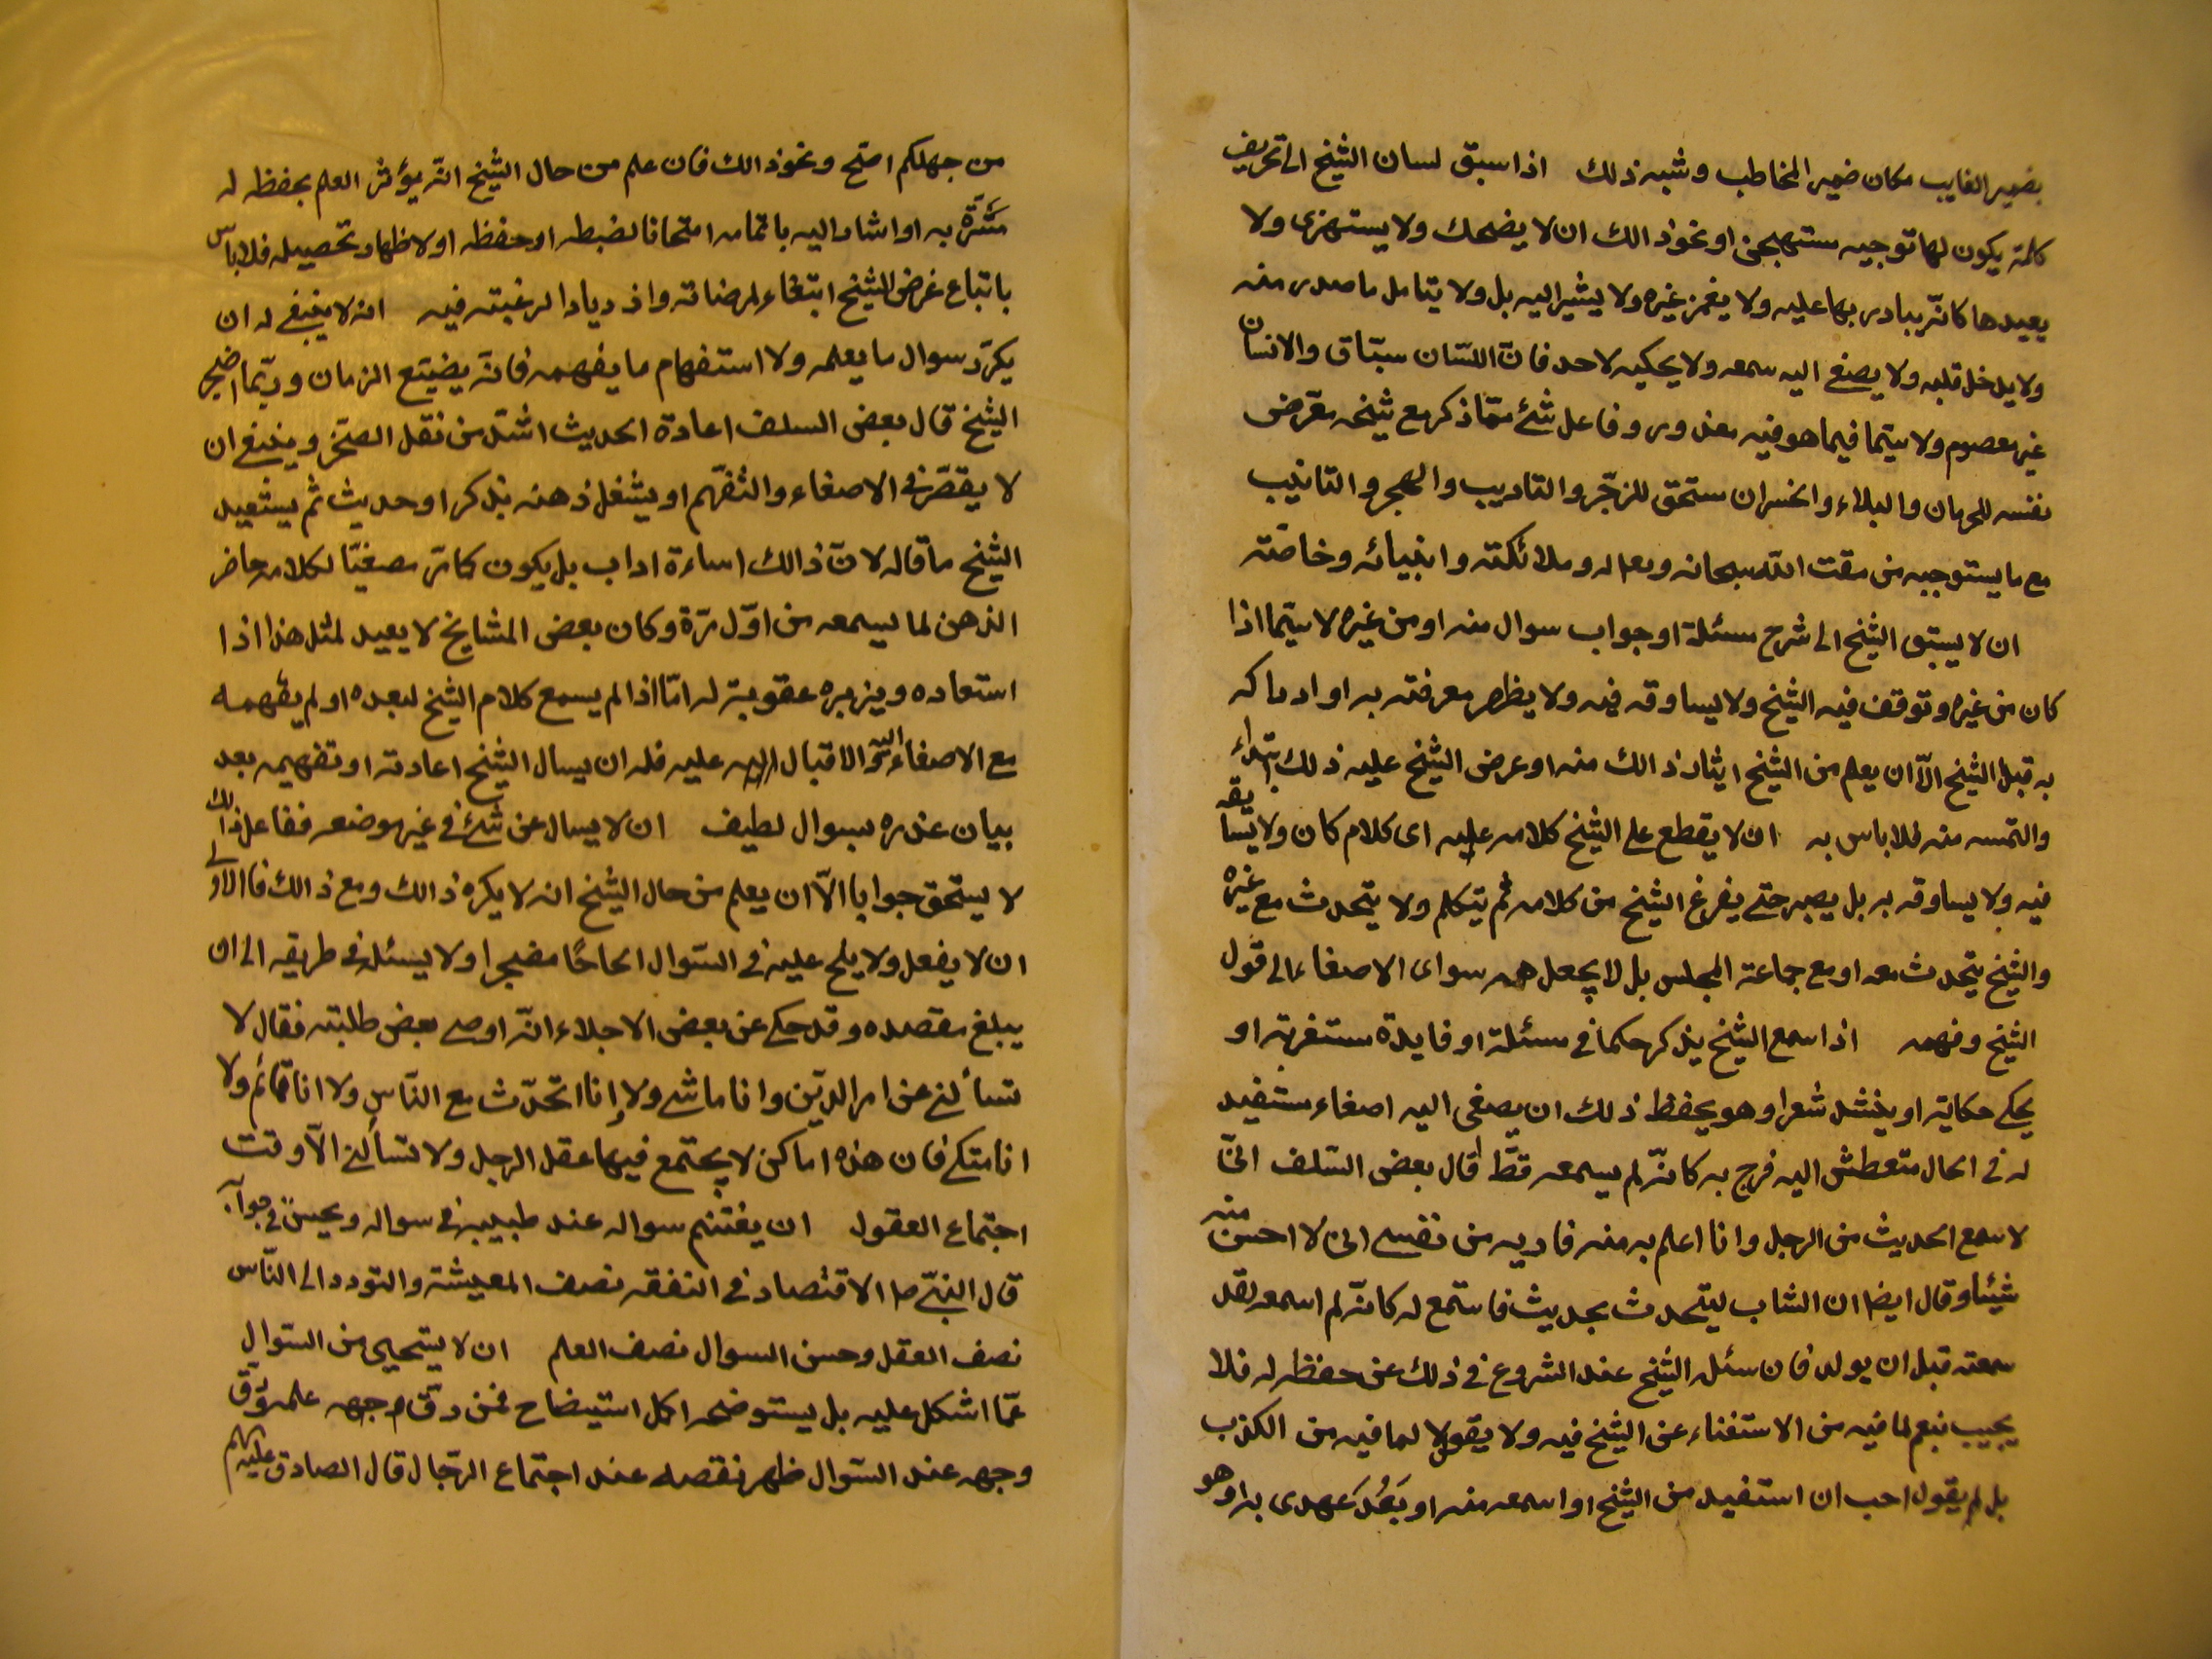 بضمير الغايب مكان ضمير المخاطب وشبه ذلك اذا سبق لسان الشيخ الى تحريف
كلمة يكون لها توجيه مستهجن او نحو ذالك ان لا يضحك ولا يستهزى ولا
يعيدها كانّه يبادر بها عليه ولا يغمز غيره ولا يشير اليه بل ولا يتامل ما صدر منه
ولا يدخل قلبه ولا يصغى اليه سمعه ولا يحكيه لاحد فانّ اللسّان سبّاق والانسان
غير معصوم ولا سيّما فيما هو فيه معذور وفاعل شئ ممّا ذكر مع شيخه معّرض
نفسه للحرمان والبلاء والخسران مستحق للزجّر والتاديب والهجر والتانيب
مع ما يستوجبه من مقت الله سبحانه وله وملائكته وانبيائه وخاصّته
ان لا يسبق الشيخ الى شرح مسئلة او جواب سوال منه او من غيره لا سيّما اذا
كان من غيره وتوقف فيه الشيخ ولا يساوقه فيه ولا يظهر معرفته به او ادراكه
به قبل الشيخ الّا ان يعلم من الشيخ ايثار ذالك منه او عرض الشيخ عليه ذلك ابتداء
والتمسه منه فلا باس به ان لا يقطع على الشيخ كلامه عليه اى كلام كان ولا يسابقه
فيه ولا يساوقه به بل يصبر حتى يفرغ الشيخ من كلامه ثم يتكلم ولا يتحدث مع غيره
والشيخ يتحدث معه او مع جماعة المجلس بل لا يجعل همه سواى الاصغاء الى قول
الشيخ وفهمه اذا سمع الشيخ يذكر حكما فى مسئلة او فايدة مستغربة او
يحكى حكاية او ينشد شعرا وهو يحفظ ذلك ان يصغى اليه اصغاء مستفيد
له فى الحال متعطش اليه فرح به كانّه لم يسمعه قطّ قال بعض السّلف انّى
لا سمع الحديث من الرجل وانا اعلم به منه فاديه من نفسى انى لا احسن منه
شيئا وقال ايضا ان الشاب ليتحدث بحديث فاستمع له كانّه لم اسمعه لقد
سمعته قبل ان يولد فان سئله الشيخ عند الشروع فى ذلك عن حفظه له فلا
يجيب بنعم لما فيه من الاستغناء عن الشيخ فيه ولا يقول لا لما فيه من الكذب
بل لم يقول احب ان استفيد من الشيخ او اسمعه منه او بَعُدَ عهدى به او هو
من جهلكم اصّح ونحو ذالك فان علم من حال الشيخ انّه يؤثر العلم بحفظه له
مسّرة به او اشار اليه باتمامه امتحانا لضبطه او حفظه او لاظهار تحصيله فلا باس
باتباع غرض الشيخ ابتغاء لمرضاته وازديادا لرغبته فيه انه لا ينبغى له ان
يكرّر سوال ما يعلمه ولا استفهام ما يفهمه فانّه يضيّع الزمان وربّما اضجر
الشيخ قال بعض السلف اعادة الحديث اشدّ من نقل الصّخر وينبغى ان
لا يقصّر فى الاصغاء والتفهّم او يشغل ذهنه بذكر او حديث ثم يستعيد
الشيخ ما قاله لانّ ذالك اساءة اداب بل يكون كما مّر مصغيّا لكلامه حاضر
الذهن لما يسمعه من اوّل مّرة وكان بعض المشايخ لا يعيد لمثل هذا اذا
استعاده ويزبره عقوبة له امّا اذا لم يسمع كلام الشيخ لبعده او لم يفهمه
مع الاصغاء اليه والاقبال عليه فله ان يسال الشيخ اعادته او تفهيمه بعد
بيان عذره بسوال لطيف ان لا يسال عن شئ فى غير موضعه ففاعل ذالك
لا يستحق جوابا الّا ان يعلم من حال الشيخ انه لا يكره ذالك ومع ذالك فالاولى
ان لا يفعل ولا يلح عليه فى السّوال الحاحًا مضجرا ولا يسئله فى طريقه الى ان
يبلغ مقصده وقد حكى عن بعض الاجلاء انّه اوصى بعض طلبته فقال لا
تسألنى عن امر الدّين وانا ماشى ولا وانا اتحدّث مع النّاس ولا انا قائم ولا
انا متكى فان هذه اماكن لا يجتمع فيها عقل الرجل ولا تسألنى الّا وقت
اجتماع العقول ان يغتنم سواله عند طيبه فى سواله ويحسن فى جوابه
قال النبّى ص الاقتصاد فى النفقه نصف المعيشة والتودد الى النّاس
نصف العقل وحسن السوال نصف العلم ان لا يستحيى من السّوال
عمّا اشكل عليه بل يستوضحه اكمل استيضاح فمن رقّ وجهه علمه رقّ
وجهه عند السّوال ظهر نقصه عند اجتماع الرّجال قال الصادق عليه‌السلام